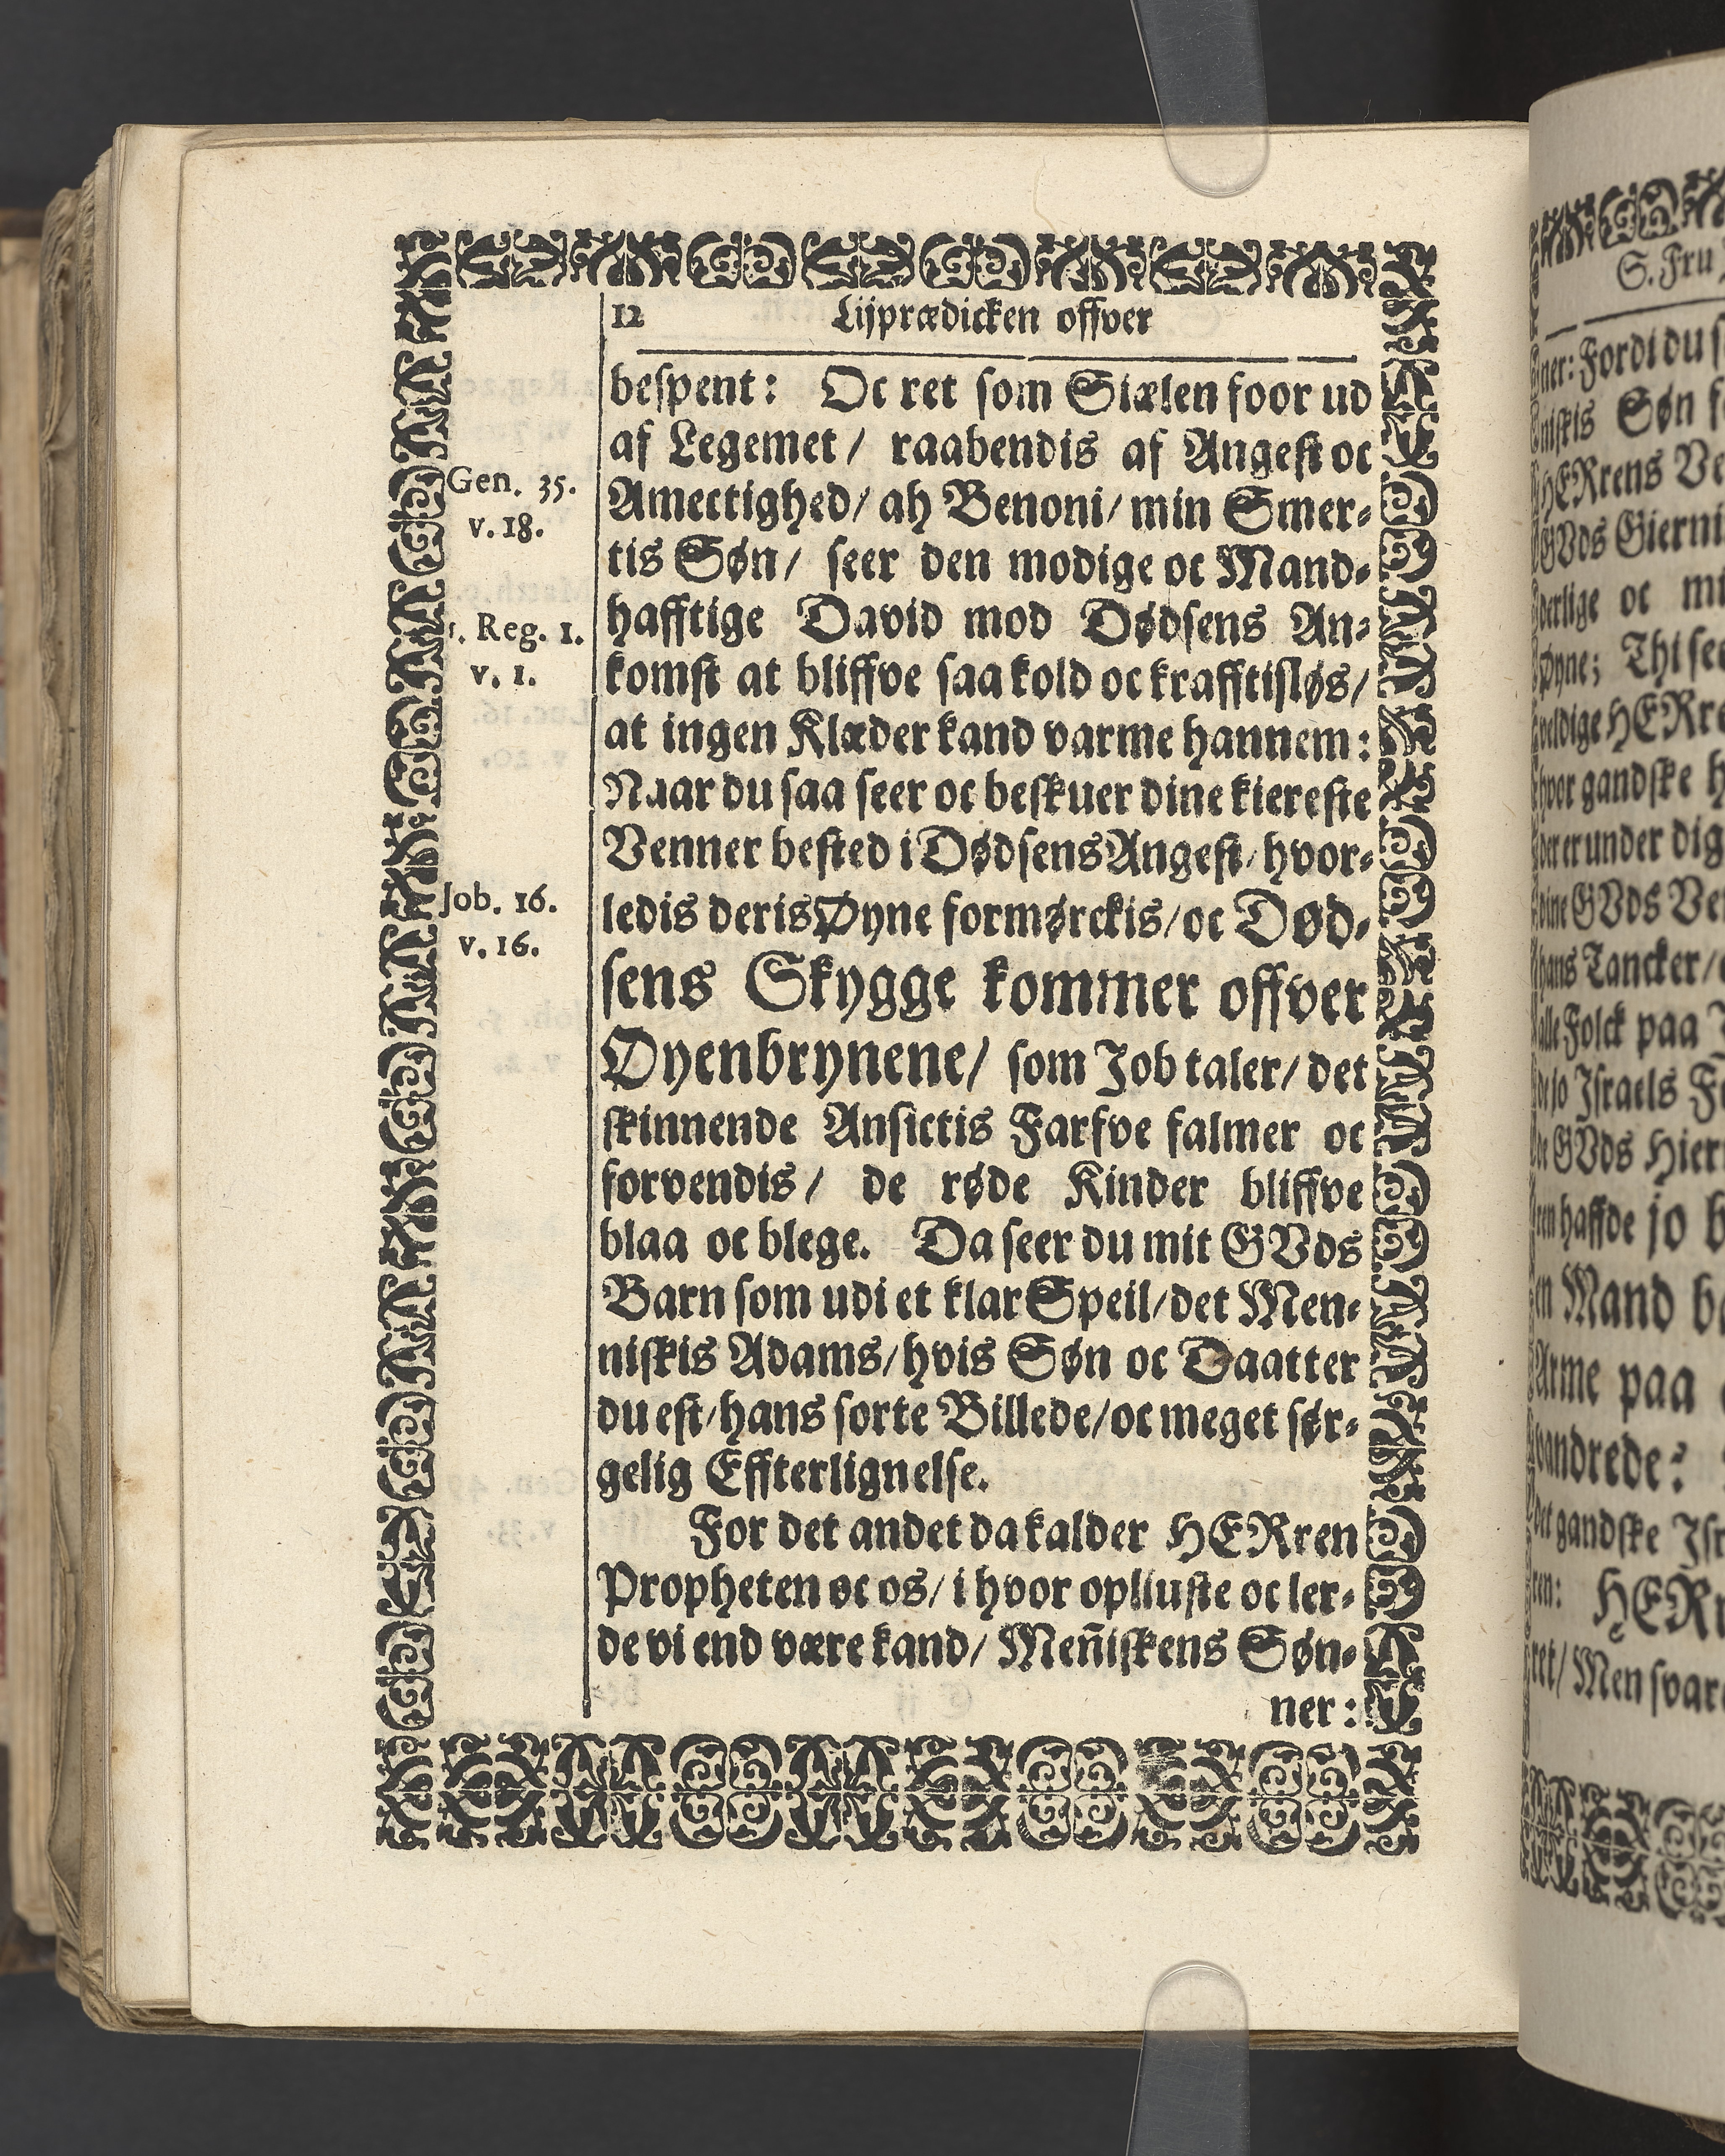 12 Lijprædicken offver
bespent: Oc ret som Siælen foor ud
af Legemet / raabendis af Angest oc
Gen. 35.
v. 18.
Amectighed/ ah Benoni/ min Smer-
tis Søn/ seer den modige oc Mand-
1. Reg. 1.
v. 1.
hafftige David mod Dødsens An-
komst at bliffve saa kold oc krafftisløs/
at ingen Klæder kand varme hannem:
Naar du saa seer oc beskuer dine kiereste
Venner bested i Dødsens Angest/ hvor-
Job. 16.
v. 16.
ledis deris Øyne formørckis/ oc Død-
sens Skygge kommer offver
Øyenbrynene/ som Job taler/ det
skinnende Ansictis Farfve falmer oc
forvendis / de røde Kinder bliffve
blaa oc blege. Da seer du mit GVds
Barn som udi et klar Speil/ det Men-
niskis Adams/ hvis Søn oc Daatter
du est/ hans sorte Billede/ oc meget sør-
gelig Effterlignelse.
For det andet da kalder HERren
Propheten oc os/ i hvor opliuste oc ler-
de vi end være kand/ Meñiskens Søn-
ner:
S. Fru
ner: Fordi du
niskis Søn
HERrens
GVds
derlige oc
Øyne; Thi
veldige
hvor gandske
der er under dig
dine GVds
hans Tancker/
alle Folck paa
de jo Israels
de GVds
ren haffde jo
en Mand
Arme paa
vandrede:
det gandske
ren:
ret/ Men